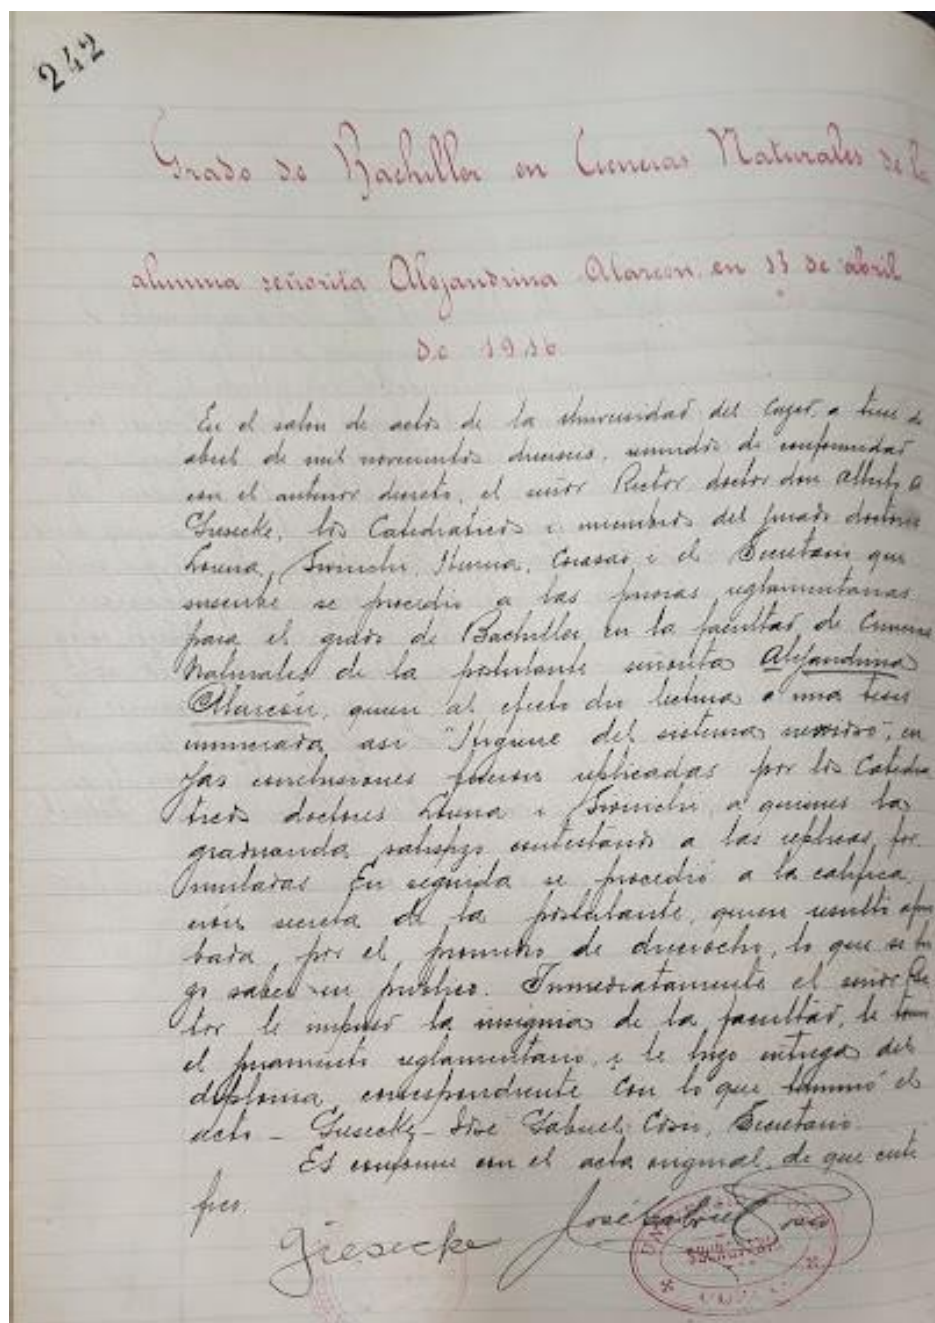 242
Grado de Bachiller en Ciencias Naturales de la
alumna señorita Alejandrina Alarcón, en 13 de abril
de 1916
En el salon de actos de la Universidad del Cuzco, a trece de
abril de mil novecientos dieciseis, reunidos de conformidad
con el anterior decreto, el señor Rector doctor don Alberto A
Giesecke, los Catedráticos i miembros del jurado doctores
Lorena, Cosio i el Secretario que
suscribe se procedió a las pruebas reglamentarias
para el grado de Bachiller en la facultad de Ciencias
Naturales de la postulante señorita Alejandrina
Alarcón, quien al efecto dio lectura a una tesis
enunciada asi "Higiene del sistema nervioso", cu
yas conclusiones fueron replicadas por los Catedra
ticos doctores Lorena i a quienes la
graduanda satisfizo contestando a las replicas for
muladas En seguida se procedió a la califica
ción secreta de la postulante, quien resultó apro
bada, por el promedio de dieciocho, lo que se hi
zo saber en publico. Inmediatamente el señor Rec
tor le impuso la insignia de la facultad, le tomó
el juramento reglamentario, i le hizo entrega del
diploma correspondiente con lo que terminó el
acto – Giesecke – José Gabriel Cosio, Secretario.
Es conforme con el acta original, de que certi
fico.
José Gabriel Cosio
Giesecke